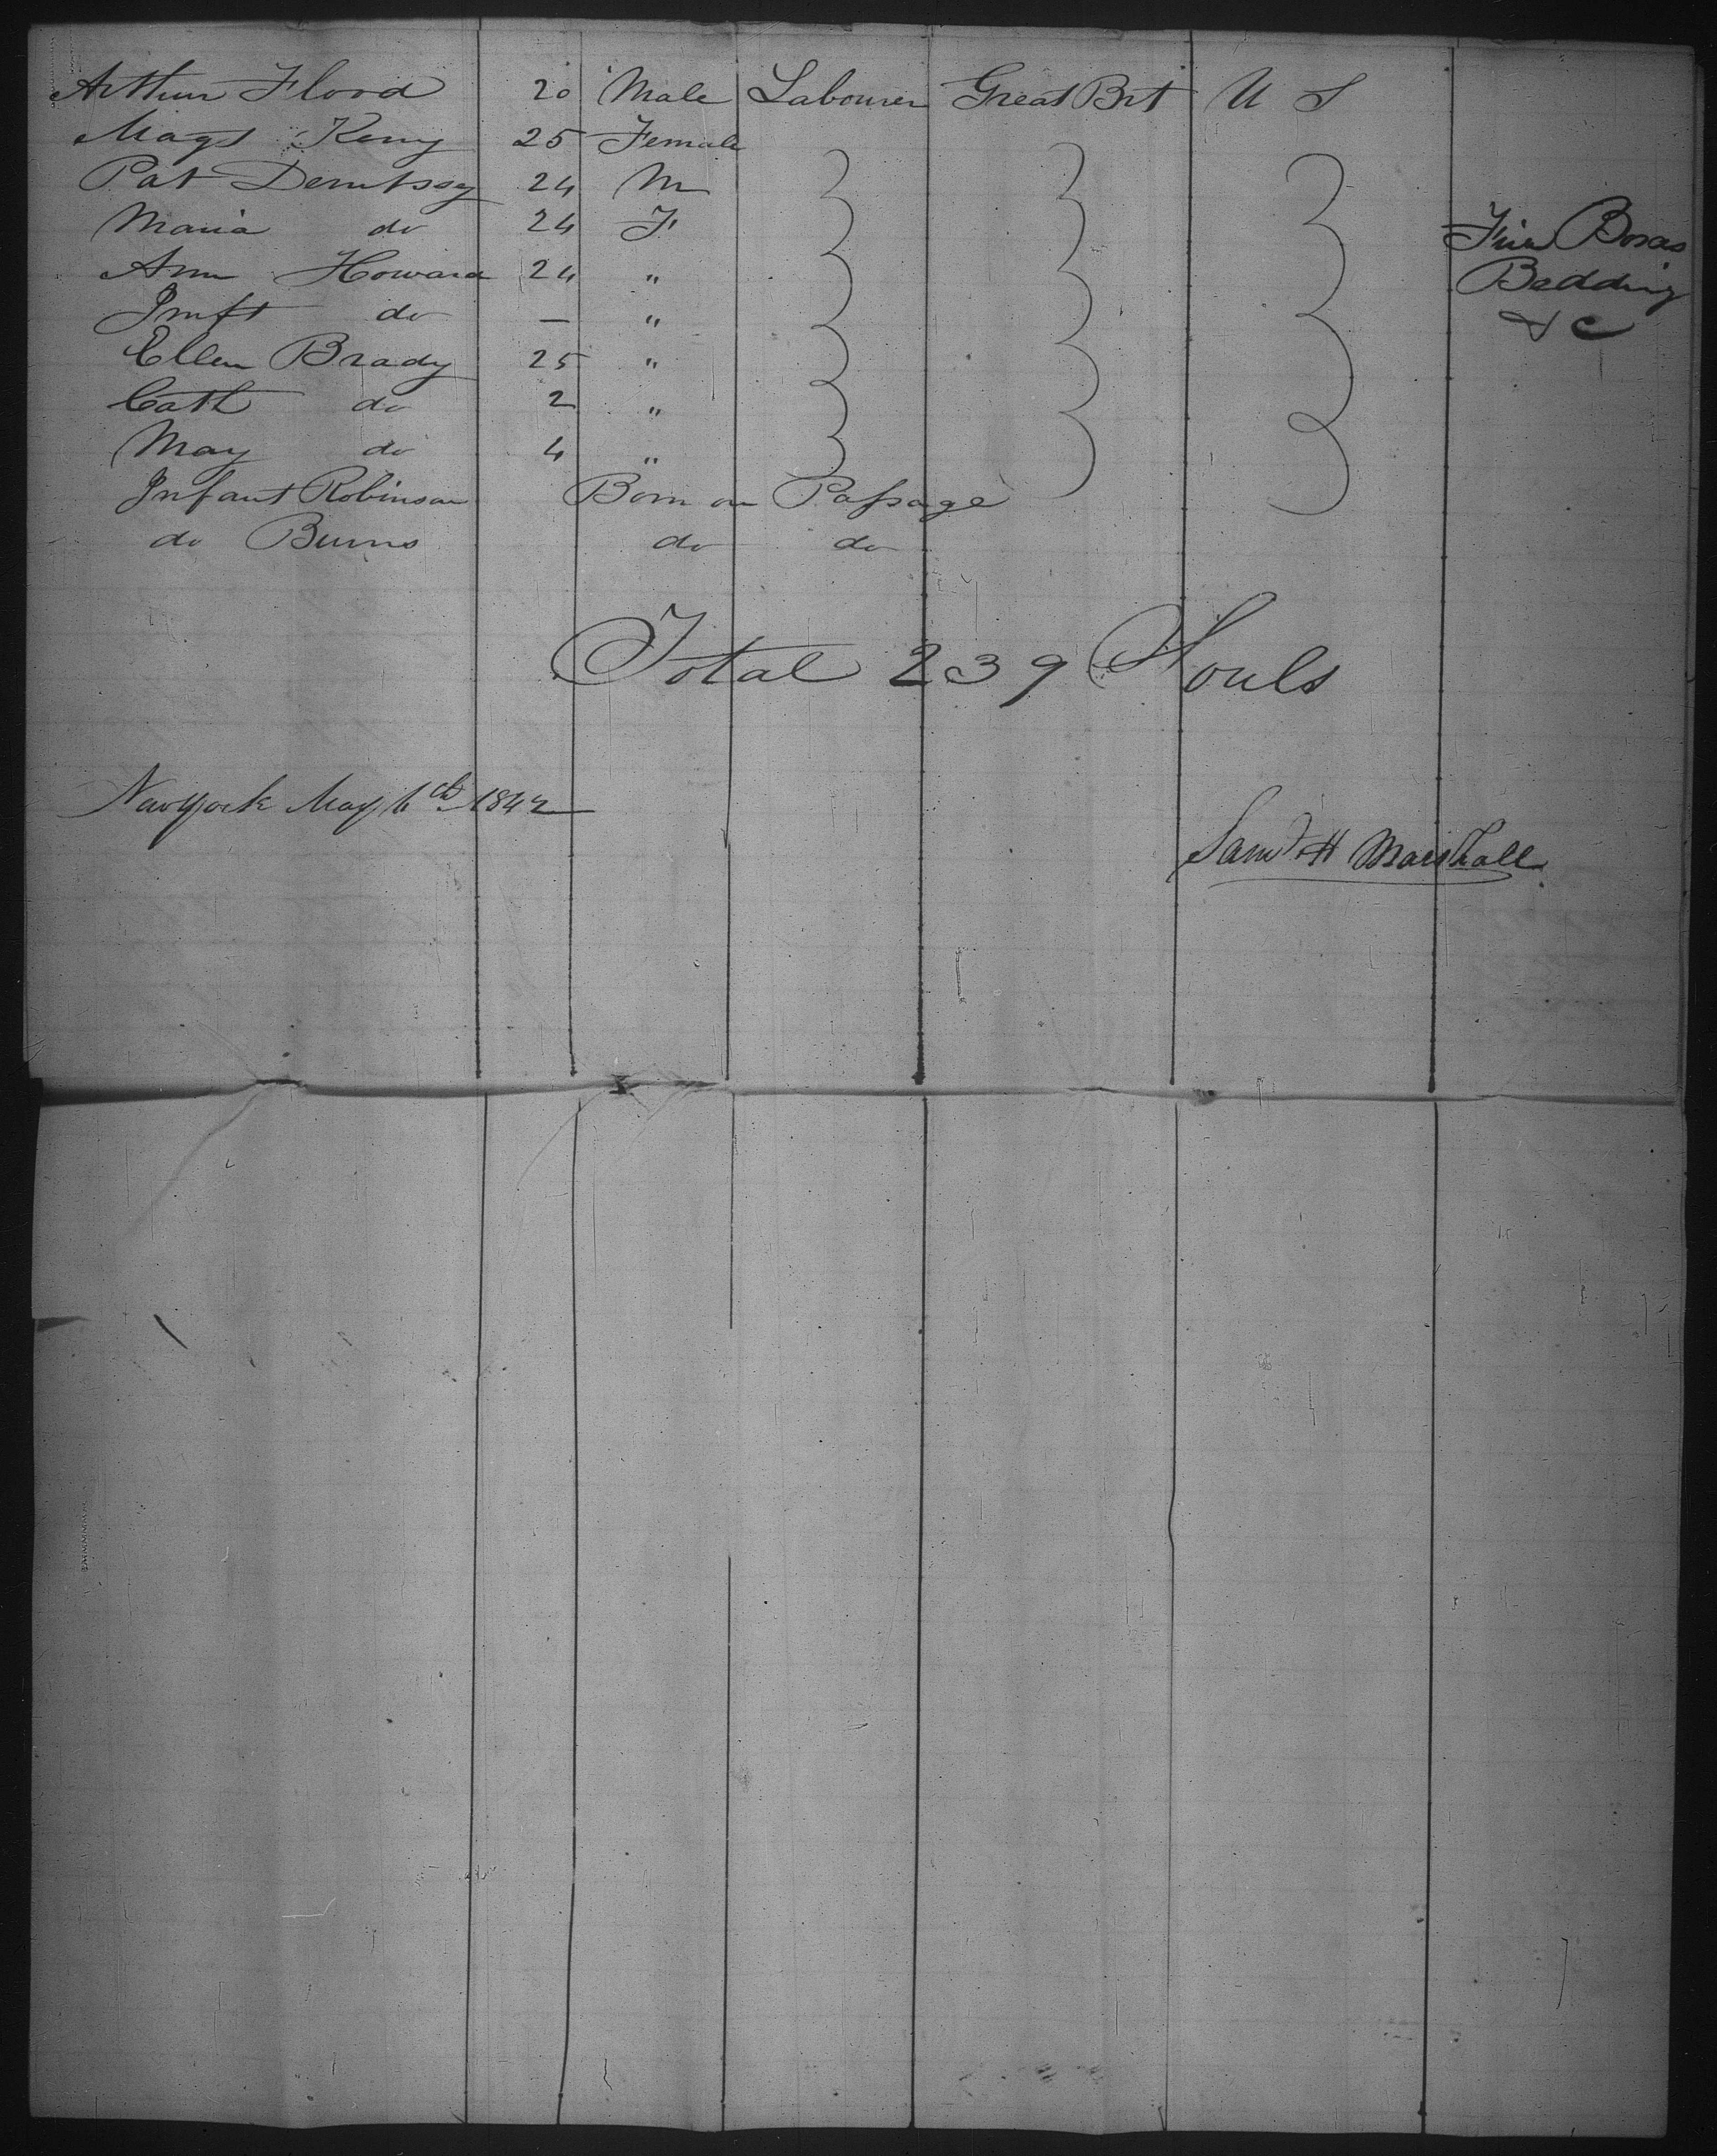 Arthur Flood 20 Male Labourer Great Brt U S
Magt Keny 25 Female
Pat Demtssy 24 M
Maria do 24 F
Ann Howard 24 "
Imft do — "
Ellen Brady 25 "
Cath do 2 "
May do 4 "
Infant Robinson Born on Passage
do Burns do do
Boxes
Bedding
& c
Total 239 Souls
New York May 6th 1842
Saml H Marshall